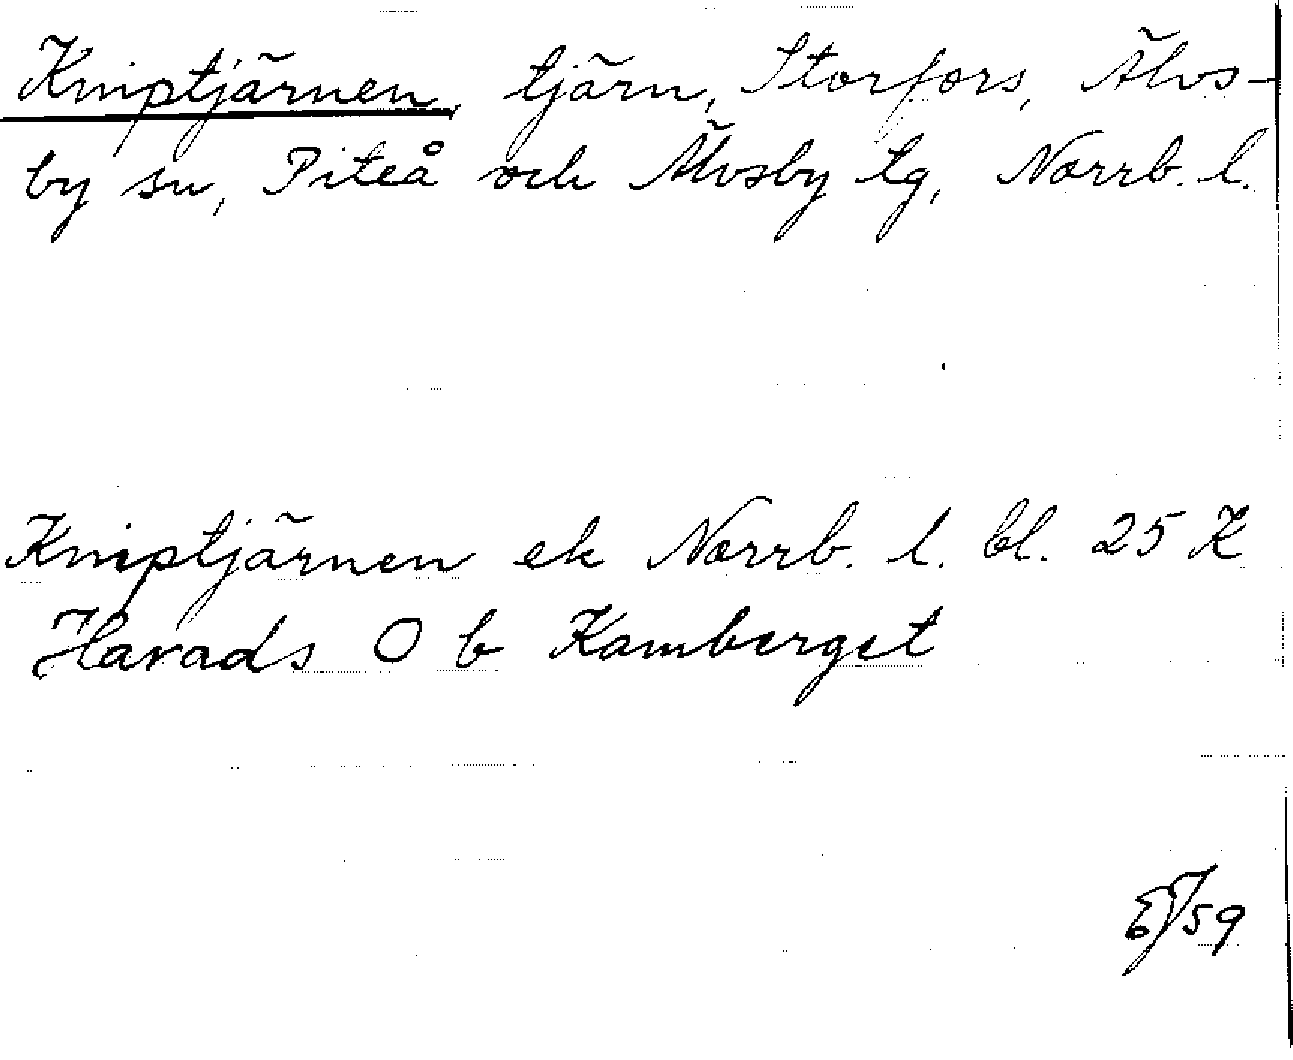 Kniptjärnen, tjärn, Storfors, Älvs-
by sn, Piteå och Älvsby tg, Norrb. l.
Kniptjärnen ek Norrb. l. bl. 25 K
Harads O b Kamberget
59